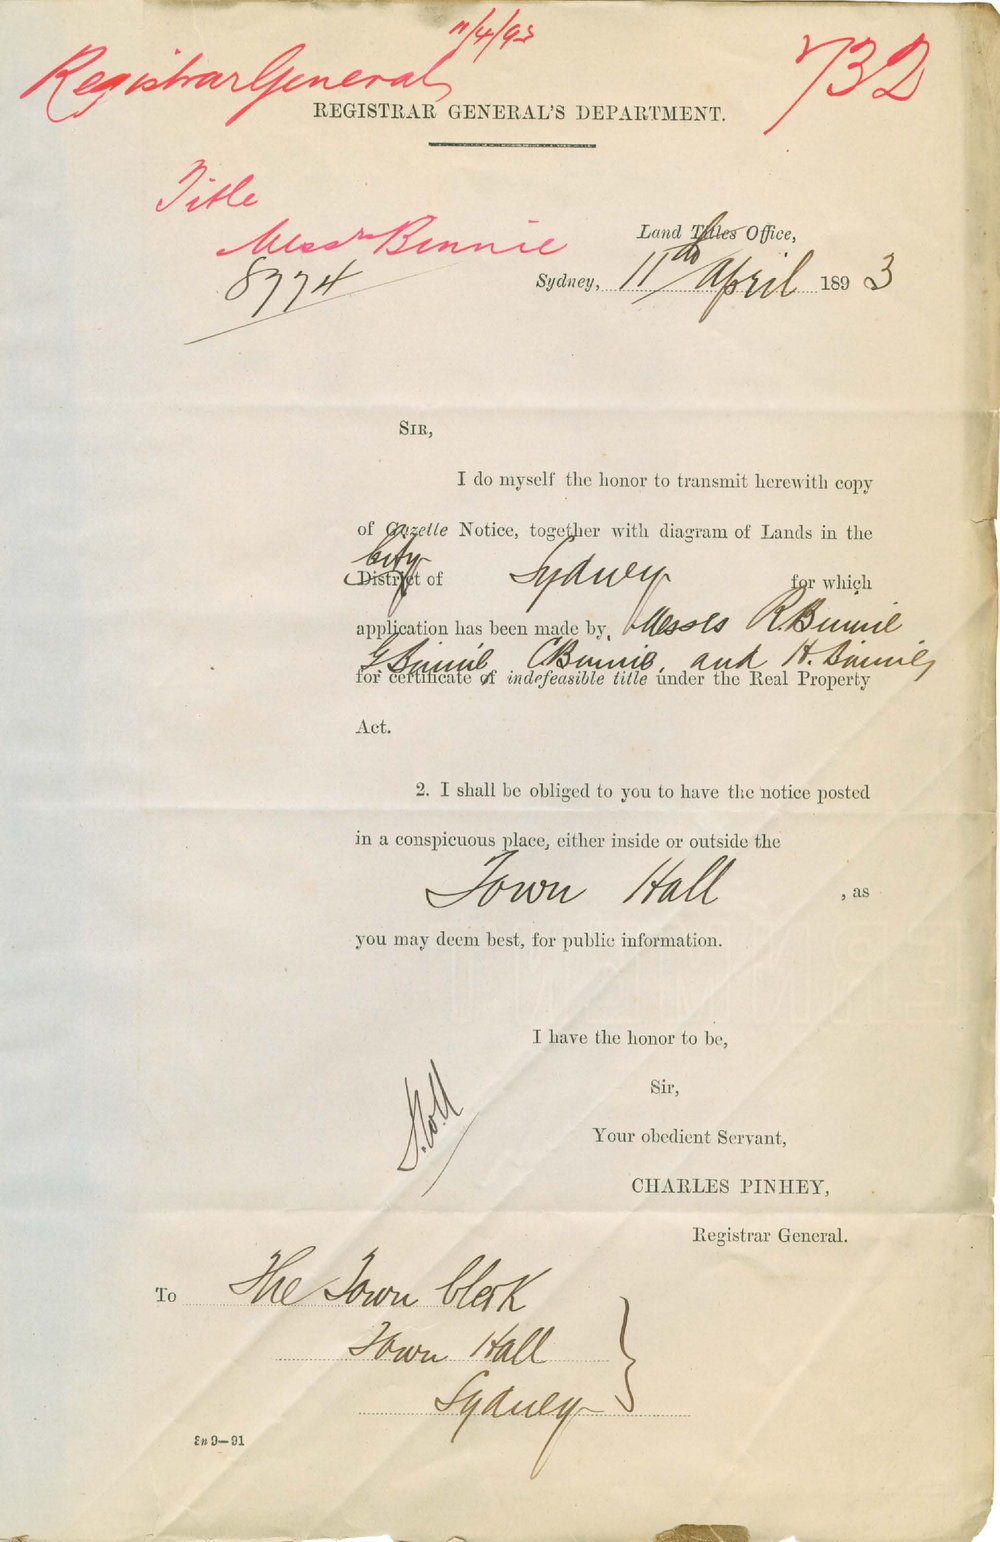 11/4/93
Registrar General
732
REGISTRAR GENERAL'S DEPARTMENT.
Title
Messrs Binnie
8774
Land Titles Office,
Sydney, 11th April 1893
SIR,
I do myself the honor to transmit herewith copy
of Gazette Notice, together with diagram of Lands in the
City
District of Sydney for which
application has been made by, Messrs R. Binnie
G Binnie, C Binnie, and H. Binnie,
for certificate of indefeasible title under the Real Property
Act.
2. I shall be obliged to you to have the notice posted
in a conspicuous place, either inside or outside the
Town Hall , as
you may deem best, for public information.
I have the honor to be,
Sir,
Your obedient Servant,
CHARLES PINHEY,
Registrar General.
To The Town Clerk
Town Hall
Sydney
9—91